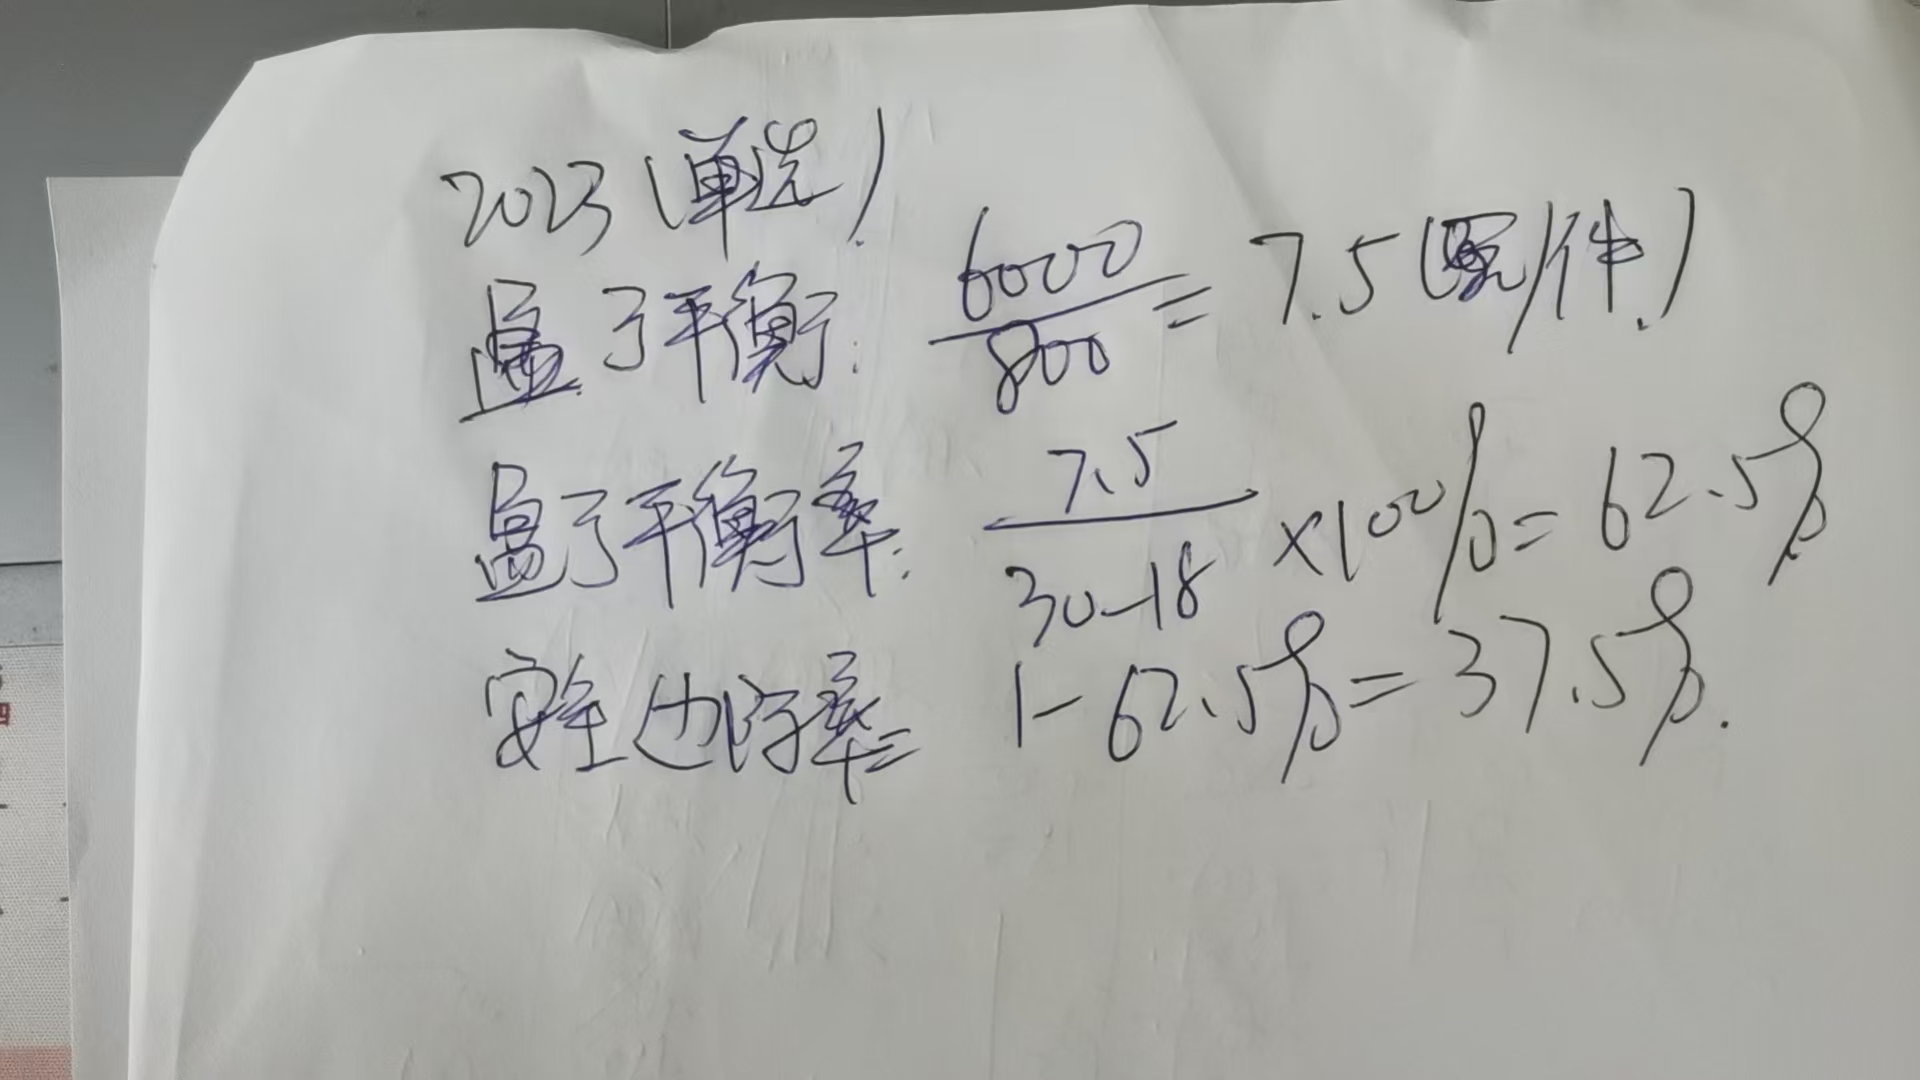 2023(单选)
盈亏平衡: 6000/800=7.5(元/件)
盈亏平衡率: 7.5/30-18×100%=62.5%
安全边际率= 1-62.5%=37.5%.